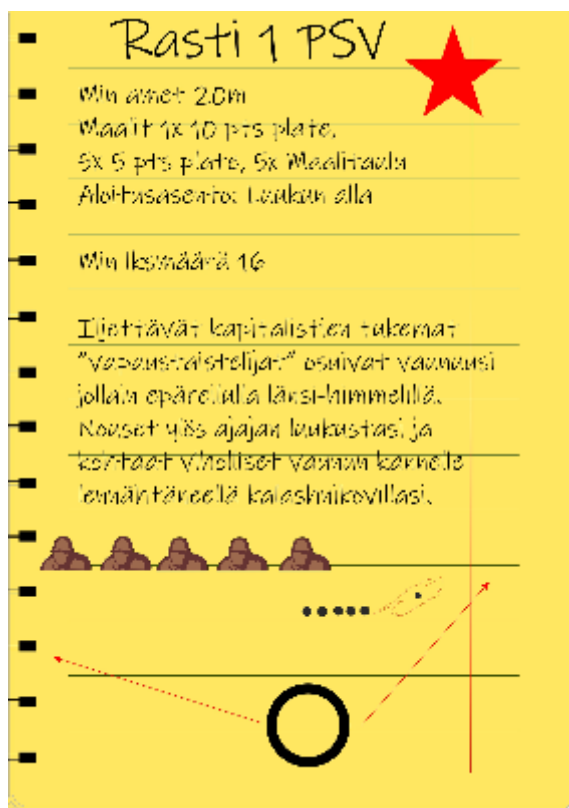 Rasti 1 PSV
Min amet 20m
Maalit 1x 10 pts plate,
5x 5 pts plate, 5x Maalitaulu
Aloitusasento: Luukun alla
Min lksmäärä 16
Iljettävät kapitalistien tukemat
"vapaustaistelijat" osuivat vaunuusi
jollain epäreilulla länsi-himmelillä.
Nouset ylös ajajan luukustasi ja
kohtaat viholliset vaunun kannelle
lennähtäneellä kalashnikovillasi.